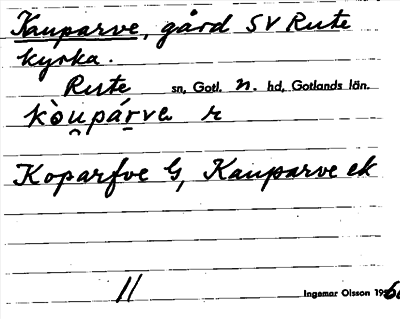 Kauparve, gård SV Rute
kyrka.
Rute sn, Gotl. n. hd, Gotlands län.
kòu̯párve r
Koparfve G, Kauparve ek
11
Ingemar Olsson 1960